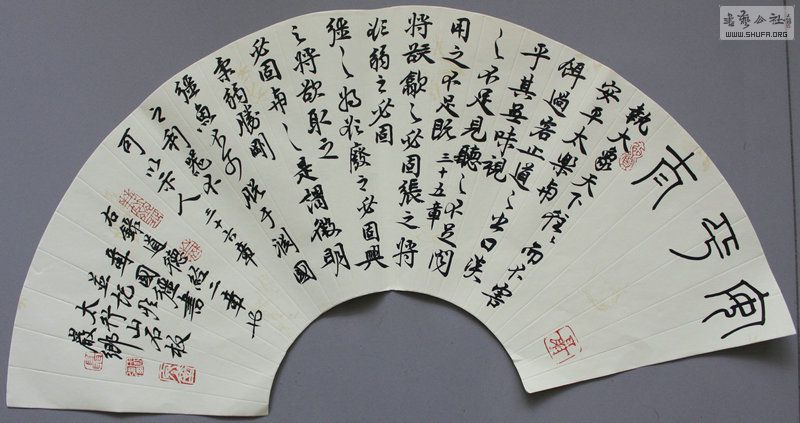 有
執大象天下往〻而不害
安平太樂與
餌過客止道之出口淡
乎其無味視
之不足見聽〻不足聞
用之不足既 三十五章
將欲歙之必固張之將
欲弱之必固
彊之將欲廢之必固興
之將欲取之
必固與之是謂微明
柔弱勝剛
彊魚不可脫于淵國
之利器不
可以示人 三十六章
右錄道德經二章
太行
WWW.SHUFA.ORG